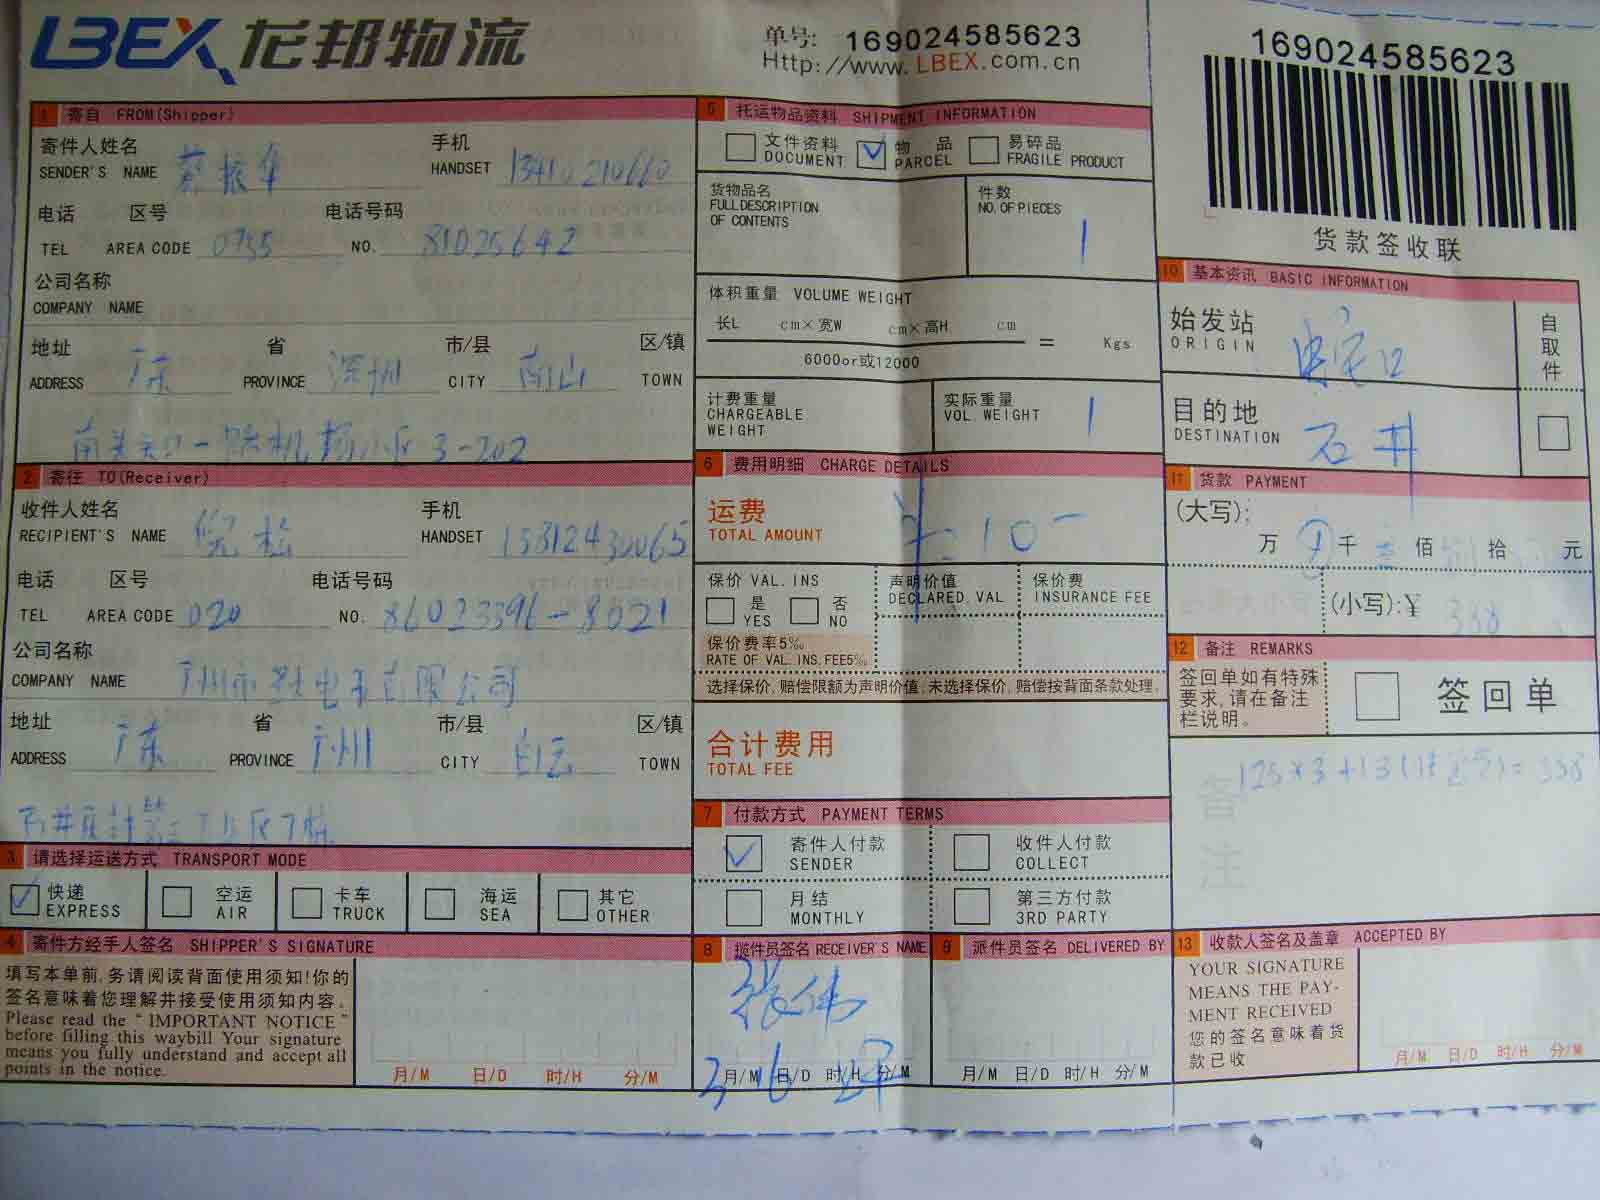 LBEX 龙邦物流
单号: 169024585623
Http://www.LBEX.com.cn
169024585623
货款签收联
1 寄自 FROM(Shipper)
寄件人姓名 手机
SENDER'S NAME 蔡振华 HANDSET 13410210660
电话 区号 电话号码
TEL AREA CODE 0755 NO. 81025642
公司名称
COMPANY NAME
地址 省 市/县 区/镇
ADDRESS 广东 PROVINCE 深圳 CITY 南山 TOWN
3-202
2 寄往 TO(Receiver)
收件人姓名 手机
RECIPIENT'S NAME 倪松 HANDSET 15812430065
电话 区号 电话号码
TEL AREA CODE 020 NO. 86023396-8021
公司名称
COMPANY NAME 广州市 电子有限公司
地址 省 市/县 区/镇
ADDRESS 广东 PROVINCE 广州 CITY 白云 TOWN
石井
3 请选择运送方式 TRANSPORT MODE
快递 空运 卡车 海运 其它
EXPRESS AIR TRUCK SEA OTHER
4 寄件方经手人签名 SHIPPER'S SIGNATURE
填写本单前,务请阅读背面使用须知!你的
签名意味着您理解并接受使用须知内容。
Please read the "IMPORTANT NOTICE"
before filling this waybill Your signature
means you fully understand and accept all
points in the notice.
月/M 日/D 时/H 分/M
5 托运物品资料 SHIPMENT INFORMATION
文件资料 物品 易碎品
DOCUMENT PARCEL FRAGILE PRODUCT
货物品名 件数
FULL DESCRIPTION NO. OF PIECES
OF CONTENTS 1
体积重量 VOLUME WEIGHT
长L cm×宽W cm×高H cm = Kgs
6000or或12000
计费重量 实际重量
CHARGEABLE VOL. WEIGHT 1
WEIGHT
6 费用明细 CHARGE DETAILS
运费 ¥:10-
TOTAL AMOUNT
保价 VAL. INS 声明价值 保价费
是 否 DECLARED. VAL INSURANCE FEE
YES NO
保价费率5‰
RATE OF VAL. INS. FEE5‰
选择保价,赔偿限额为声明价值,未选择保价,赔偿按背面条款处理.
合计费用
TOTAL FEE
7 付款方式 PAYMENT TERMS
寄件人付款 收件人付款
SENDER COLLECT
月结 第三方付款
MONTHLY 3RD PARTY
8 揽件员签名 RECEIVER'S NAME
张伟
月/M 日/D 时/H 分/M
3 16
9 派件员签名 DELIVERED BY
月/M 日/D 时/H 分/M
10 基本资讯 BASIC INFORMATION
始发站 自取件
ORIGIN
目的地
DESTINATION 石井
11 货款 PAYMENT
(大写):
万 千 佰 拾 元
(小写):¥ 388
12 备注 REMARKS
签回单如有特殊
要求,请在备注
栏说明。
签回单
备注
125×3+13( )=388
13 收款人签名及盖章 ACCEPTED BY
YOUR SIGNATURE
MEANS THE PAY-
MENT RECEIVED
您的签名意味着货
款已收
月/M 日/D 时/H 分/M